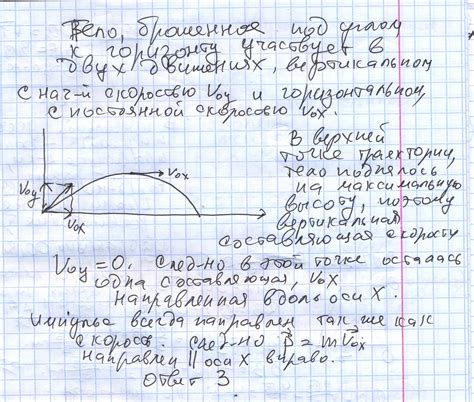 Тело, брошенное под углом
к горизонту участвует в
двух движениях, вертикальном
с нач-й скоростью Voy и горизонтальном,
с постоянной скоростью Vox.
В верхней
точке траектории,
тело поднялось
на максимальную
высоту, поэтому
вертикальная
составляющая скорости
Vox
Voy
Vox
Voy = 0. след-но в этой точке осталась
одна составляющая, Vox
направленная вдоль оси X.
Импульс всегда направлен так же как
скорость. след-но P = mVox
направлен || оси X вправо.
Ответ 3